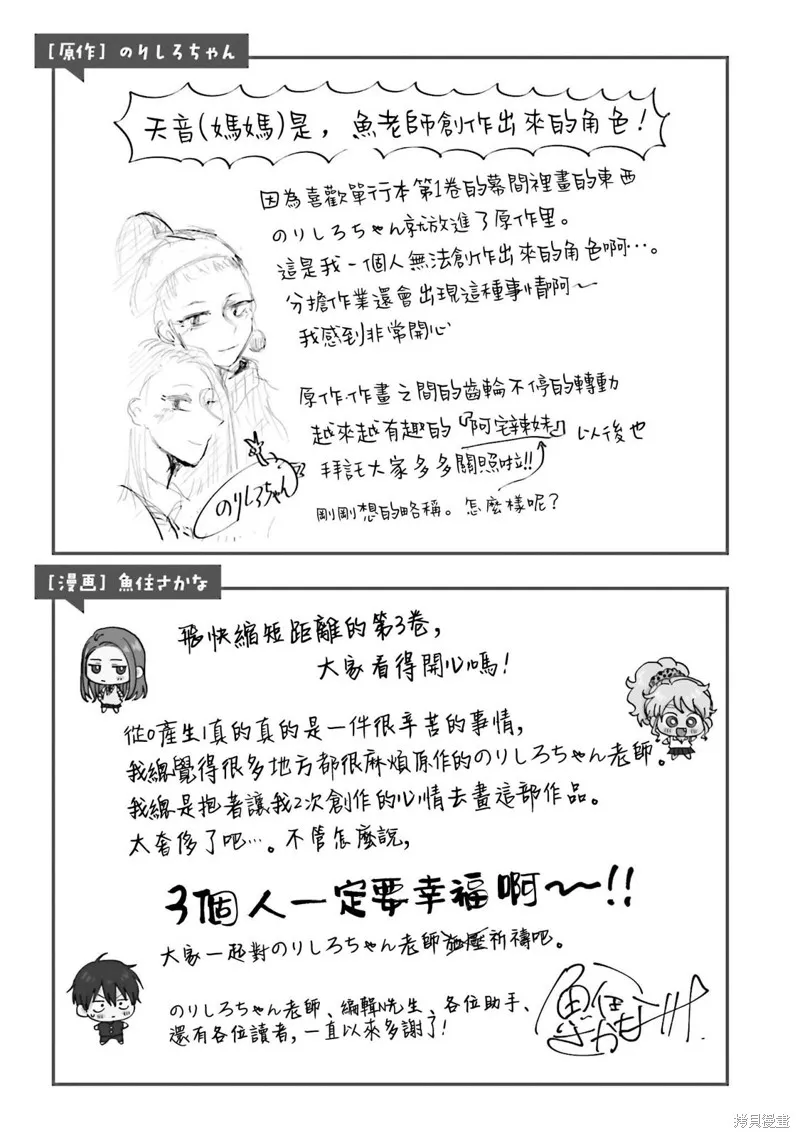 [原作] のりしろちゃん
天音(媽媽)是，魚老師創作出來的角色！
因為喜歡單行本第1卷的幕間裡畫的東西
のりしろちゃん就放進了原作里。
這是我一個人無法創作出來的角色啊…。
分擔作業還會出現這種事情啊～
我感到非常開心
原作作畫之間的齒輪不停的轉動
越來越有趣的『阿宅辣妹』以後也
拜託大家多多關照啦!!
剛剛想的略稱。怎麼樣呢？
のりしろちゃん
[漫画] 魚住さかな
飛快縮短距離的第3卷，
大家看得開心嗎！
從0產生1真的真的是一件很辛苦的事情，
我總覺得很多地方都很麻煩原作的のりしろちゃん老師。
我總是抱著讓我2次創作的心情去畫這部作品。
太奢侈了吧…。不管怎麼說，
3個人一定要幸福啊～!!
大家一起對のりしろちゃん老師施壓祈禱吧。
のりしろちゃん老師、編輯N先生、各位助手、
還有各位讀者，一直以來多謝了！
魚住さかな
拷貝漫畫